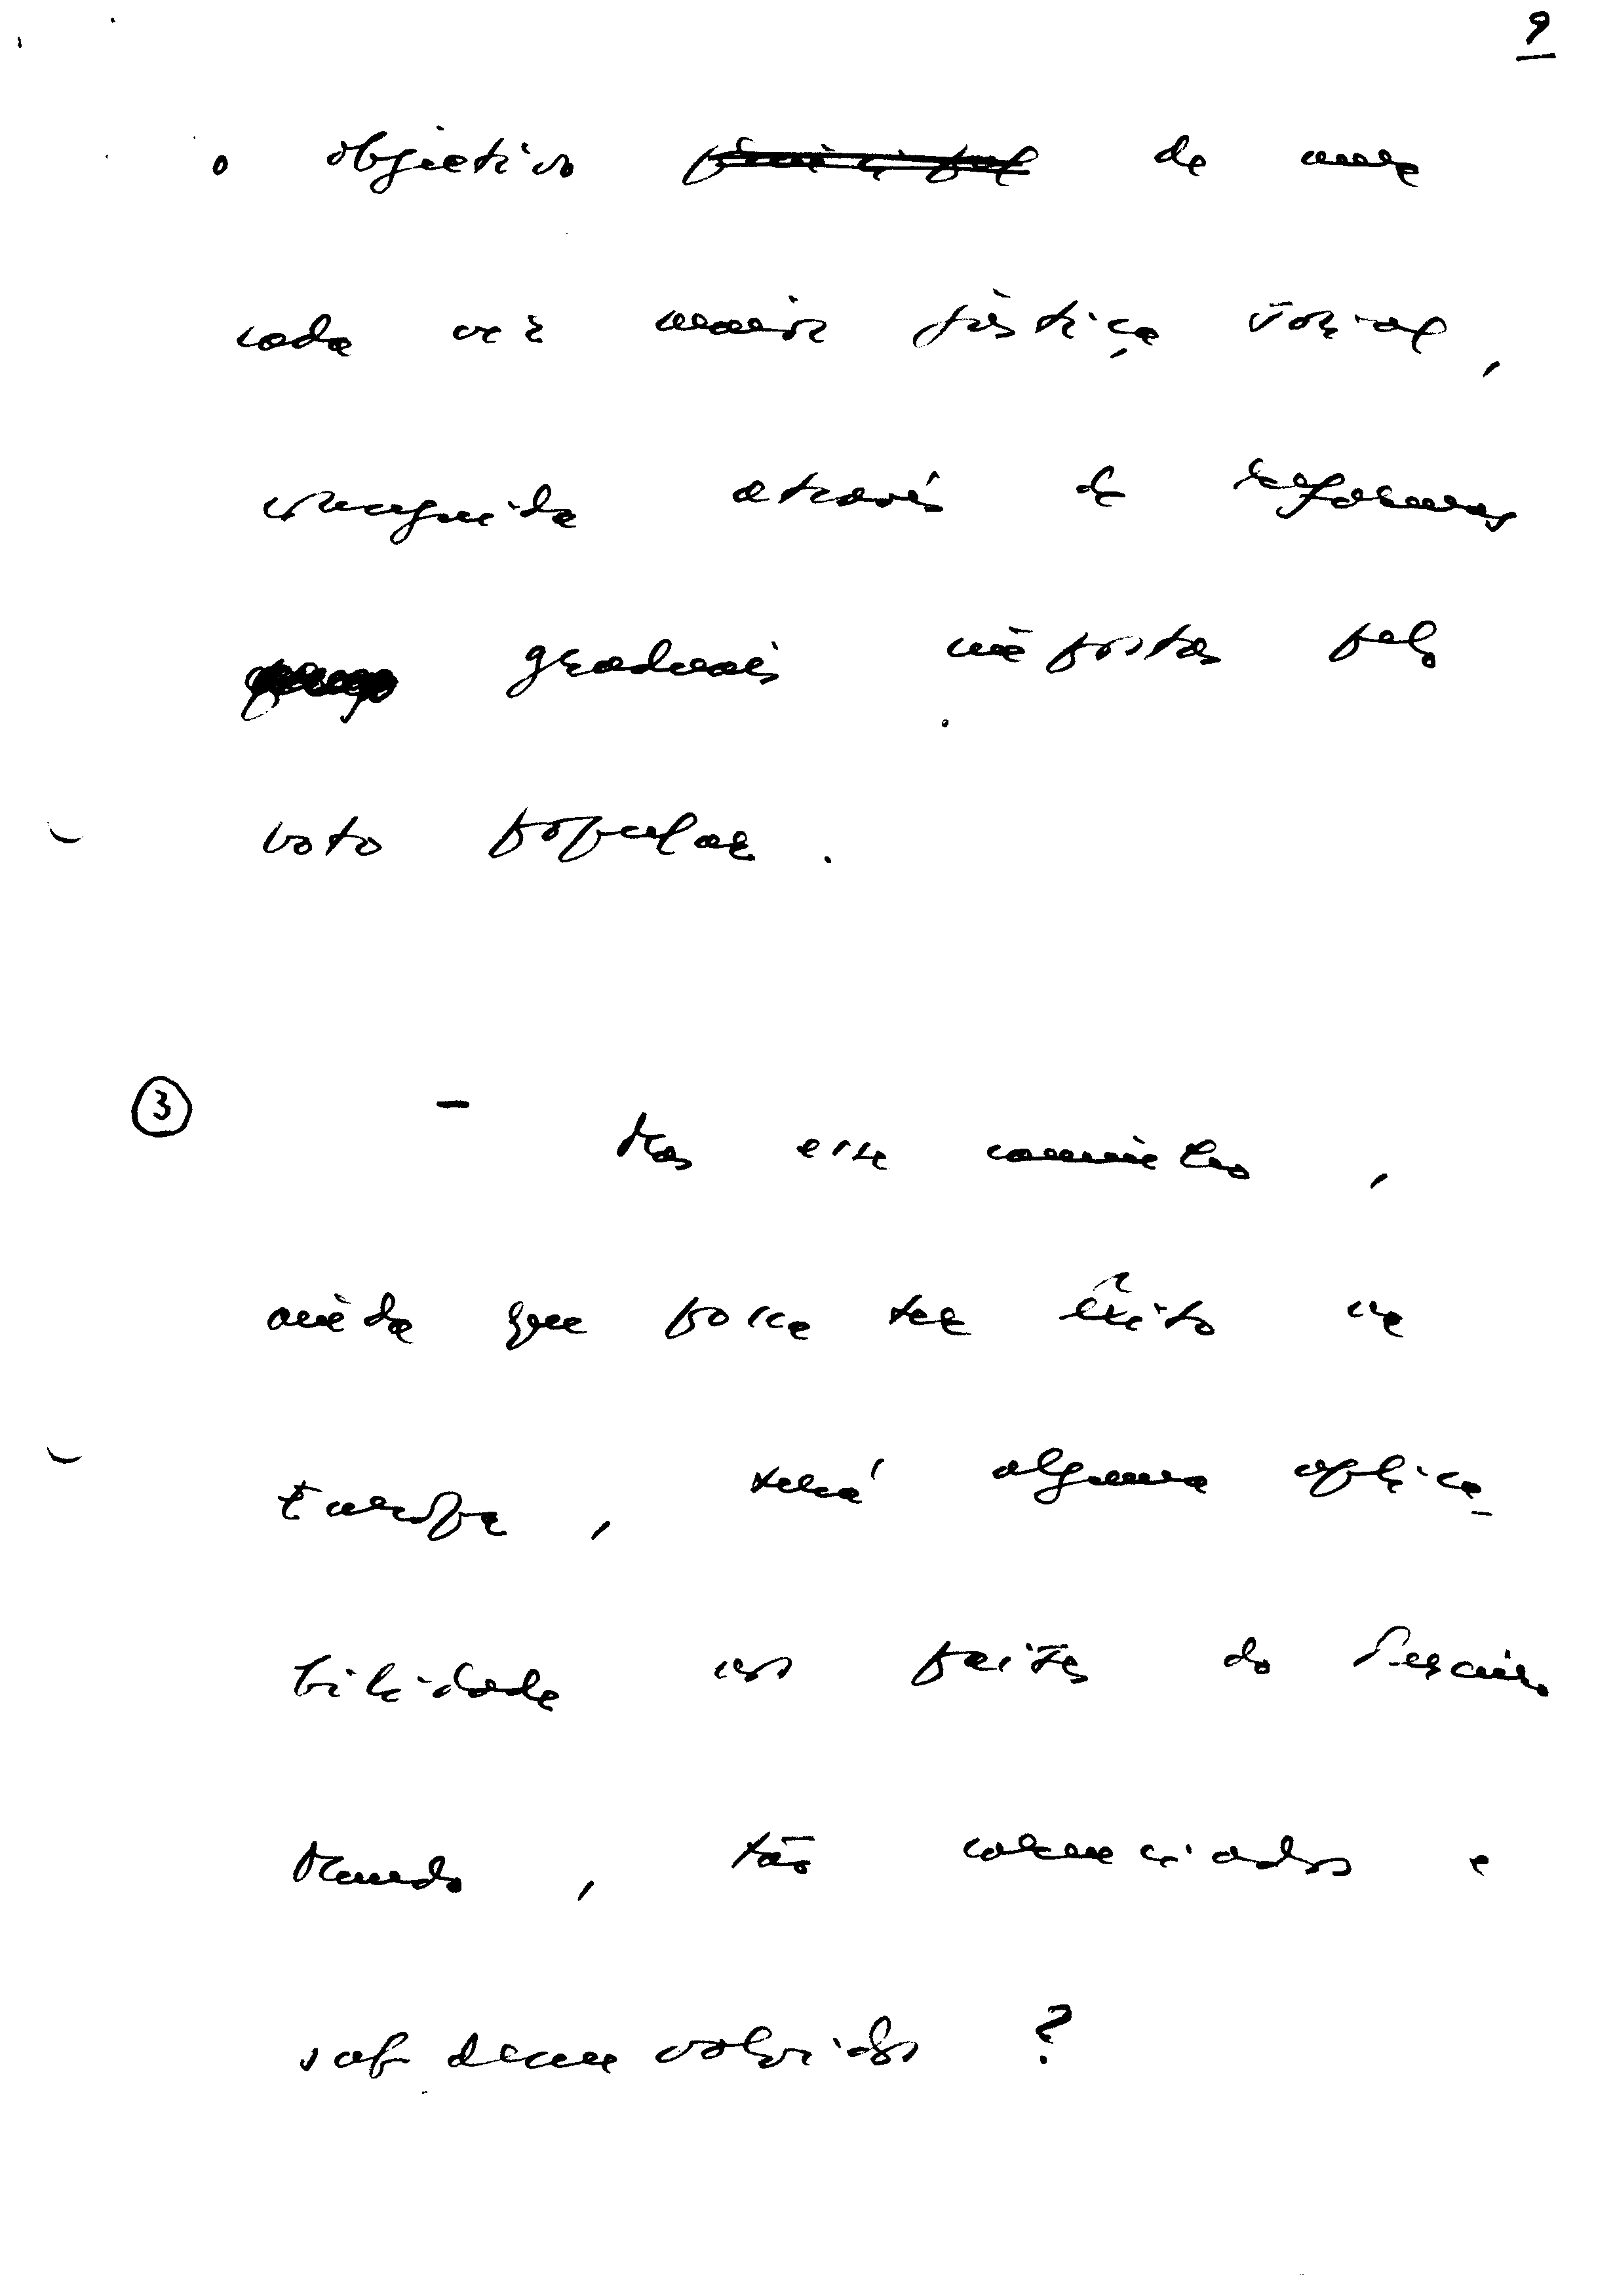 9
o objectivo principal de uma
cada vez maior justiça social,
conseguida através de reformas
graduais impostas pelo
voto popular.
3 - Mas este caminho,
ainda que possa ter êxito na
Europa, terá alguma aplica-
bilidade nos países do Terceiro
Mundo, tão carenciados e
subdesenvolvidos?